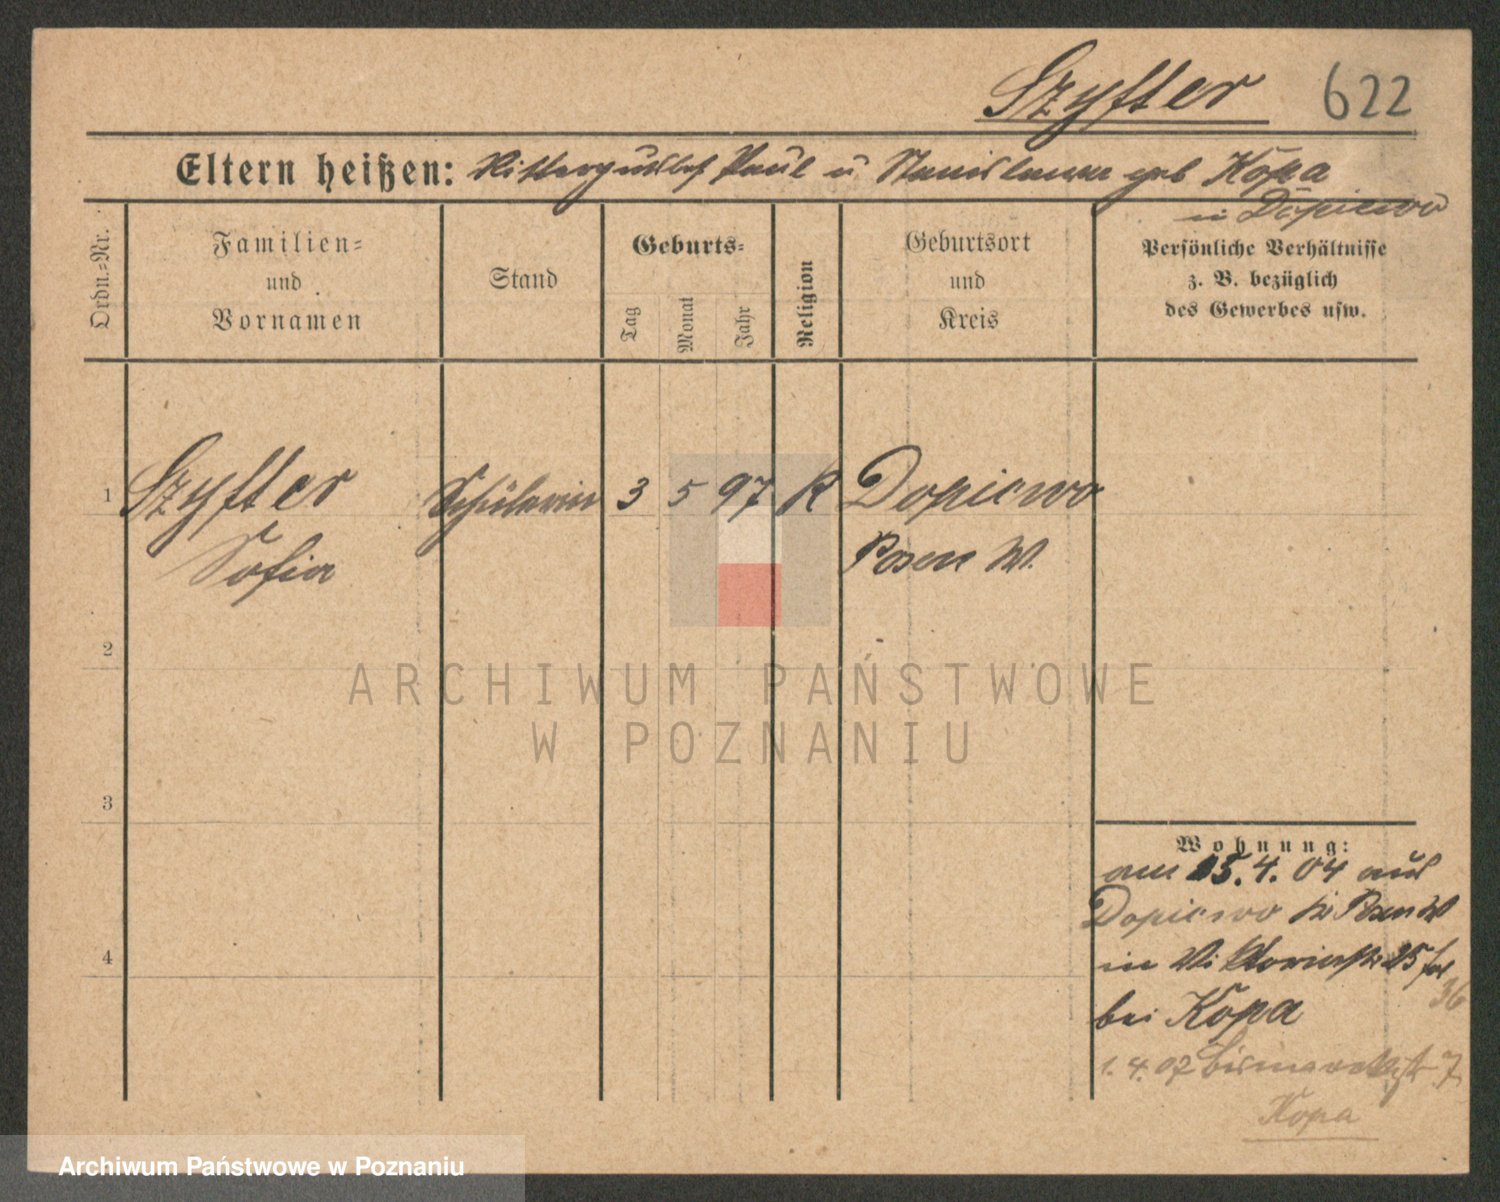 Szyfter 622
Eltern heißen: Paul u Stanislawa geb Kopa
in Dopiewo
Ordn.-Nr.
Familien-
und
Vornamen
Stand
Geburts-
Tag
Monat
Jahr
Religion
Geburtsort
und
Kreis
Persönliche Verhältnisse
z. B. bezüglich
des Gewerbes usw.
1 Szyfter Schülerin 3 5 97 K Dopiewo
Sofia Posen W.
2
3
4
Wohnung:
am 15.4.04 aus
Dopiewo Kr Posen W
in Viktoriastr 25
36
bei Kopa
1.4.07 Bismarckstr 7
Kopa
ARCHIWUM PAŃSTWOWE
W POZNANIU
Archiwum Państwowe w Poznaniu